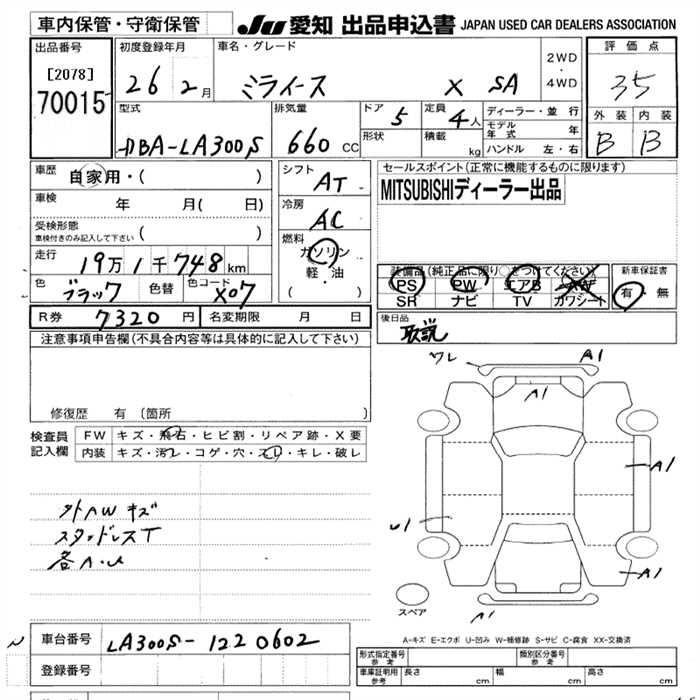 車内保管・守衛保管 JU 愛知 出品申込書 JAPAN USED CAR DEALERS ASSOCIATION
出品番号 初度登録年月 車名・グレード 2WD・4WD 評価点
[2078] 26 2月 ミライース X SA 35
70015
型式 排気量 ドア 5 定員 4人 ディーラー・並行 外装 内装
DBA-LA300S 660 CC 形状 積載 kg モデル年式 年 B B
ハンドル 左・右
車歴 自家用・( ) シフト AT セールスポイント(正常に機能するものに限り)
車検 年 月( 日) 冷房 AC MITSUBISHIディーラー出品
受検形態
車検付きのみ記入して下さい ( ) 燃料 ガソリン
走行 19万1千748km 軽・油 装備品(純正品に限り○をつけてください) 新車保証書
色 ブラック 色替 色コード X07 ( ) PS PW エアB AW 有・無
SR ナビ TV カワシート
R券 7320円 名変期限 月 日 後日品 取説
注意事項申告欄(不具合内容等は具体的に記入して下さい)
ワレ A1
A1
修復歴 有 (箇所 )
検査員 FW キズ・飛石・ヒビ割・リペア跡・X要
記入欄 内装 キズ・汚レ・コゲ・穴・スレ・キレ・破レ
A1
外AWキズ
スタッドレスT
A1
スペア
A1
A-キズ E-エクボ U-凹み W-補修跡 S-サビ C-腐食 XX-交換済
車台番号 LA300S-1220602
形式指定番号 参考 類別区分番号 参考
登録番号 車庫証明用 参考 長さ cm 幅 cm 高さ cm